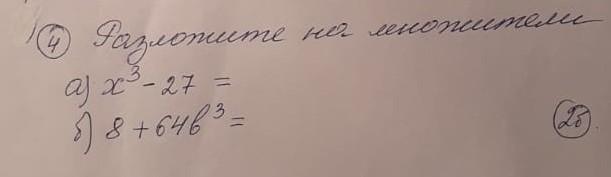 4 Разложите на множители
а) x³ - 27 =
б) 8 + 64b³ =
2б.